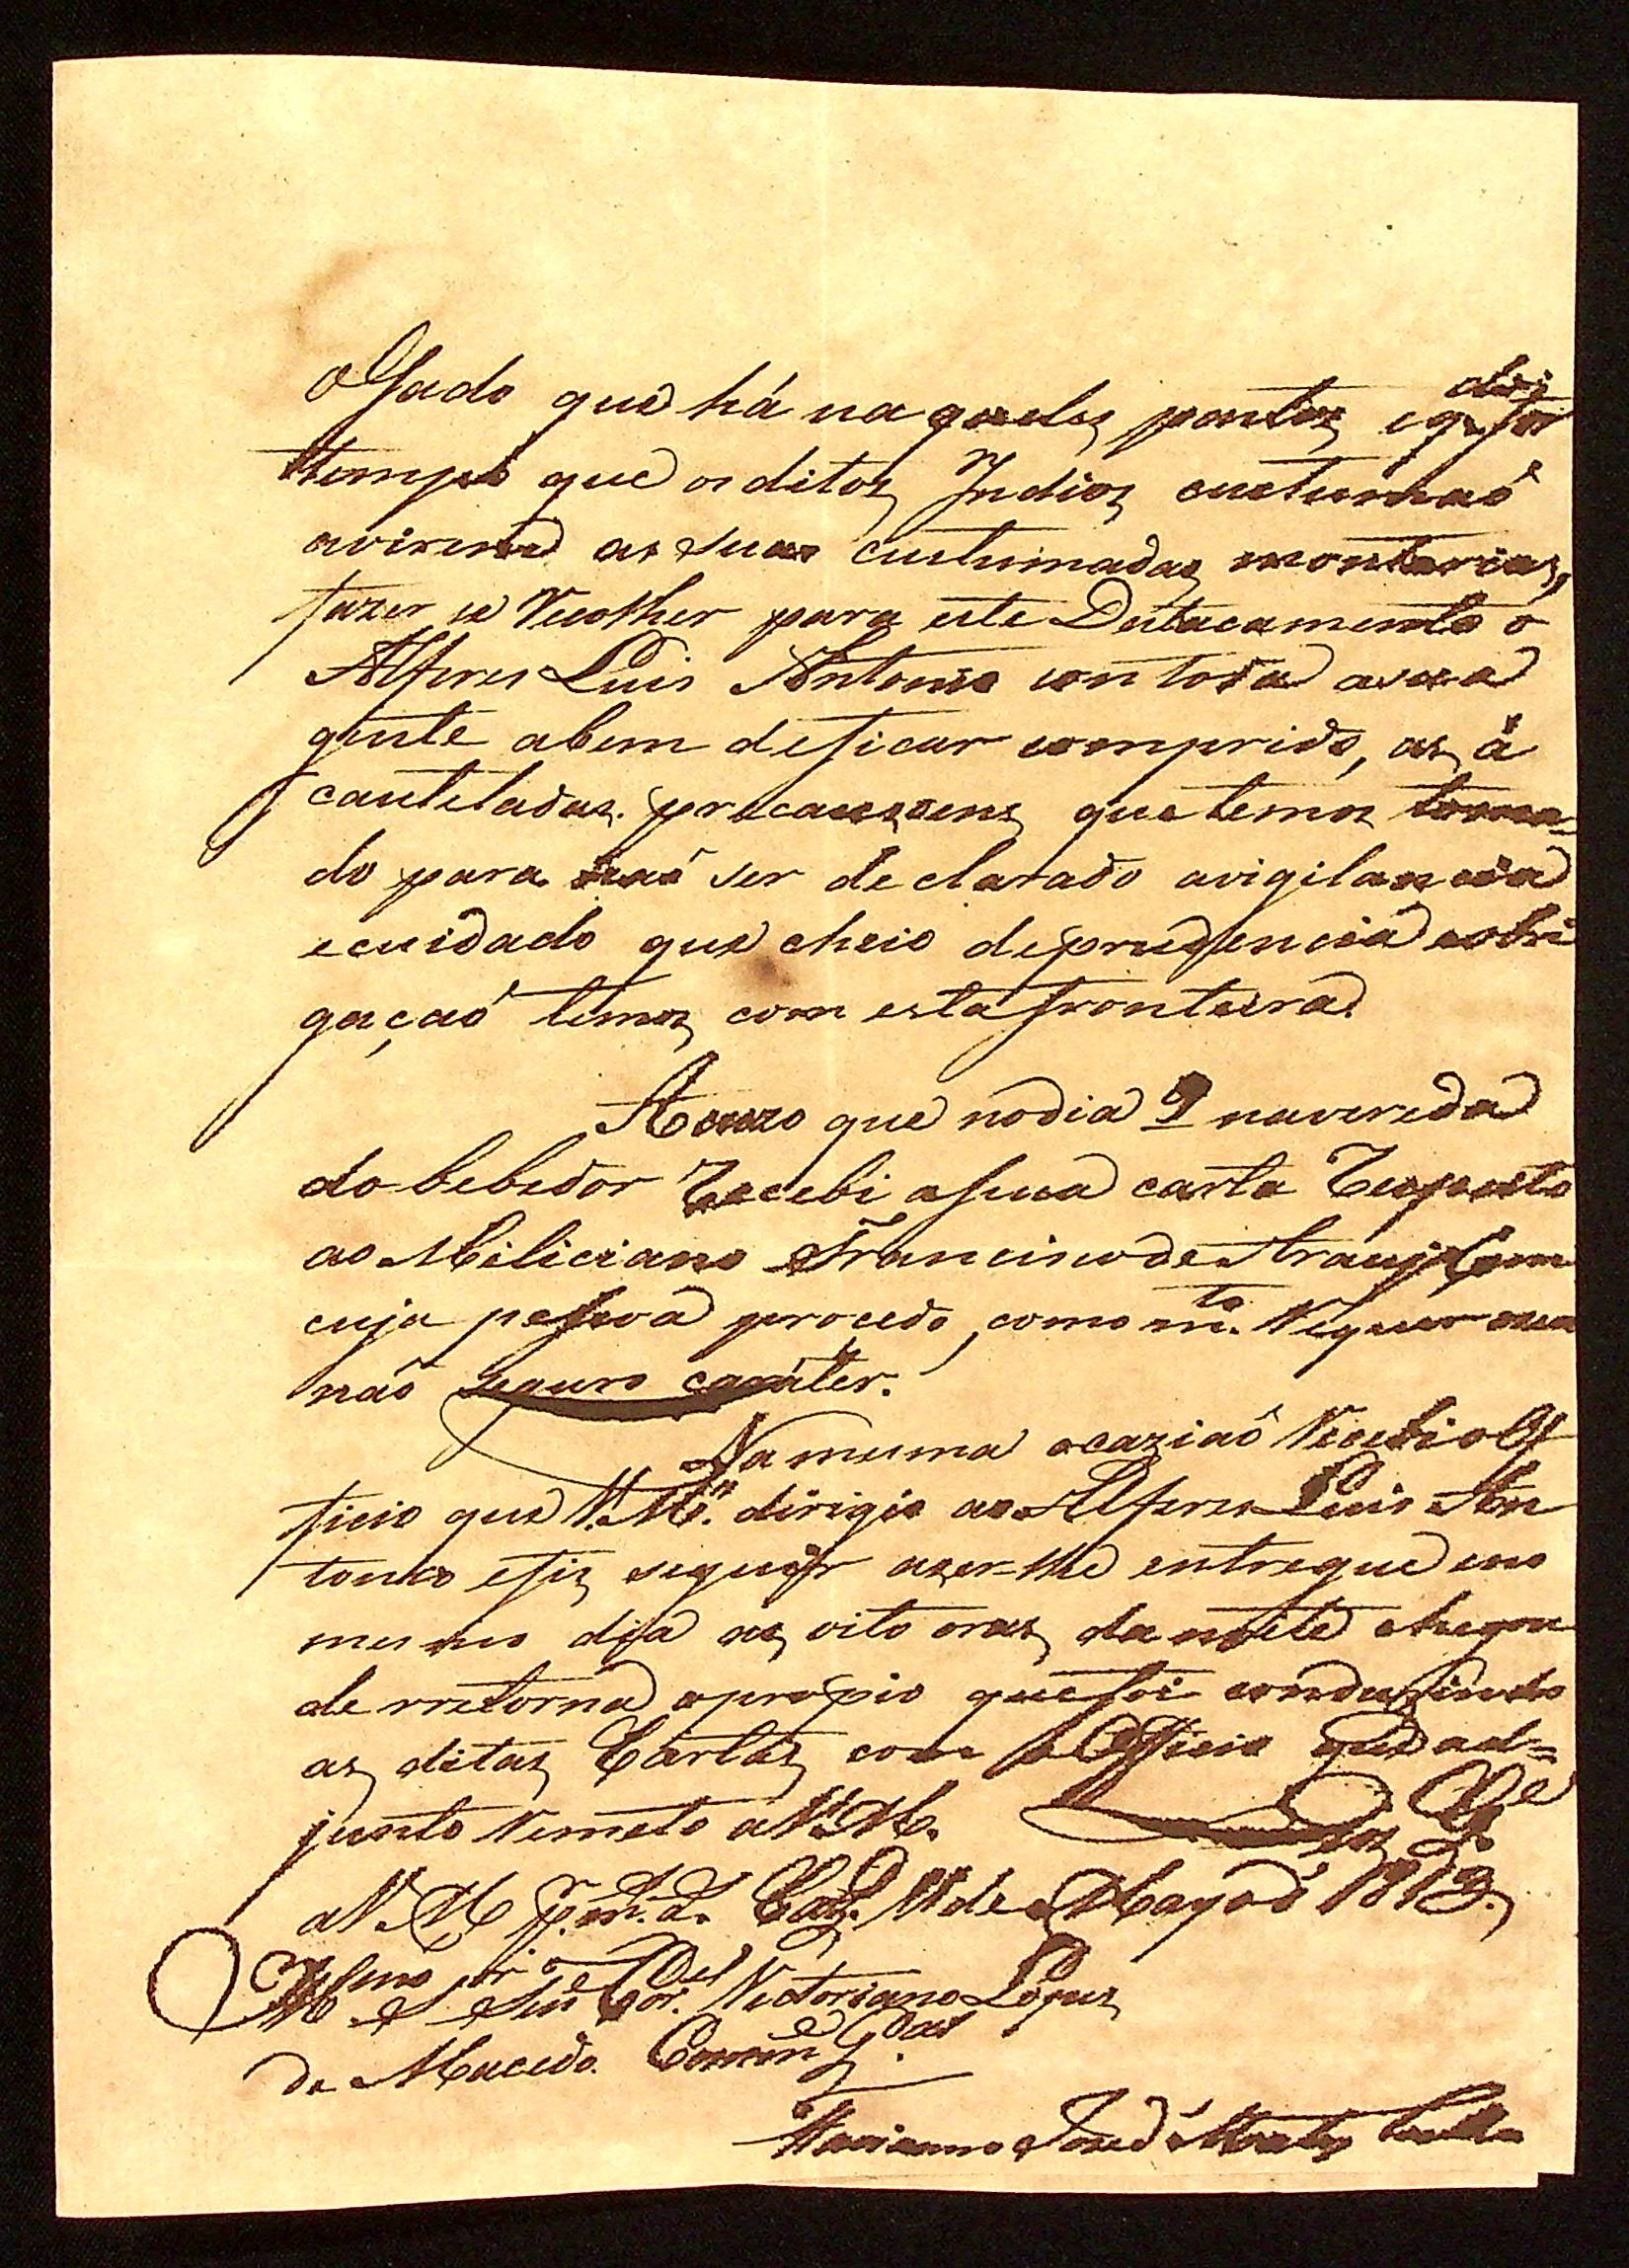 o Gado que há na queles pontos e q.
tempo que os ditos Indios custumaõ
avirem as suas custumadas montarias,
fazer se Recolher para este Destacamento o
Alferes Luis Antonio con toda a sua
gente abem deficar comprido, as á
cauteladas precaussoens que temos toma-
do para naõ ser declarado avigilancia
ecuidado que cheio deprudencia eobri
gaçaõ temos com esta fronteira.
Acuzo que nodia 9 navereda
do bebedor Recebi asua carta Respeito
ao Miliciano Francisco de Araujo com
cuja pessoa procedo, como m.to Requer
naõ seguro caráter.
Na mesma ocaziaõ Recebi o Of
ficio que V.M.ce dirigio ao Alferes Luis An
tonio efiz seguir aser-lhe entregue eno
mesmo dia as oito oras da noite chegou
de rretorna opropio que foi conduzindo
as ditas Cartas com o Officio que ad=
junto Remeto a V.M. D.s G.e
a V.M. p.r m.s a.s 11 de Mayo d 1813.
Cor.el Victoriano Lopes
de Macedo. Comm.e G.al
Marianno José